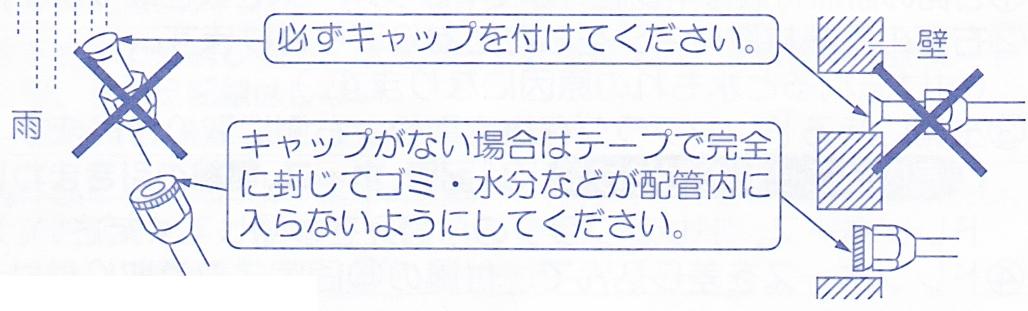 必ずキャップを付けてください。
壁
雨
キャップがない場合はテープで完全
に封じてゴミ・水分などが配管内に
入らないようにしてください。